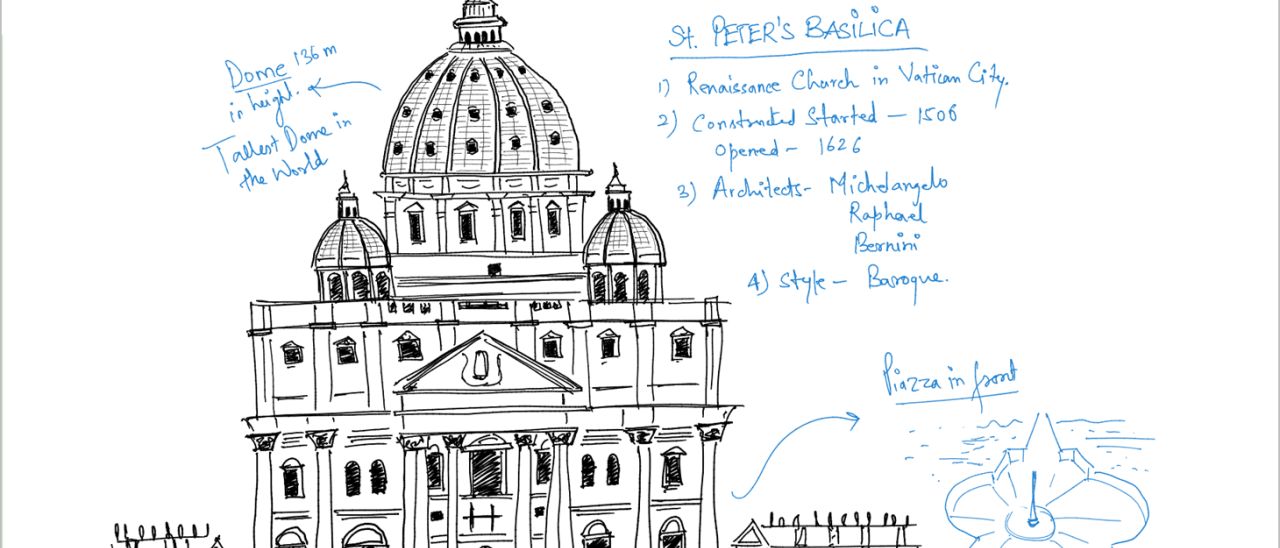 St. PETER'S BASILICA
1) Renaissance Church in Vatican City.
2) Constructed Started – 1506
Opened – 1626
3) Architects- Michelangelo
Raphael
Bernini
4) Style – Baroque.
Dome 136 m
in height.
Tallest Dome in
the World
Piazza in front